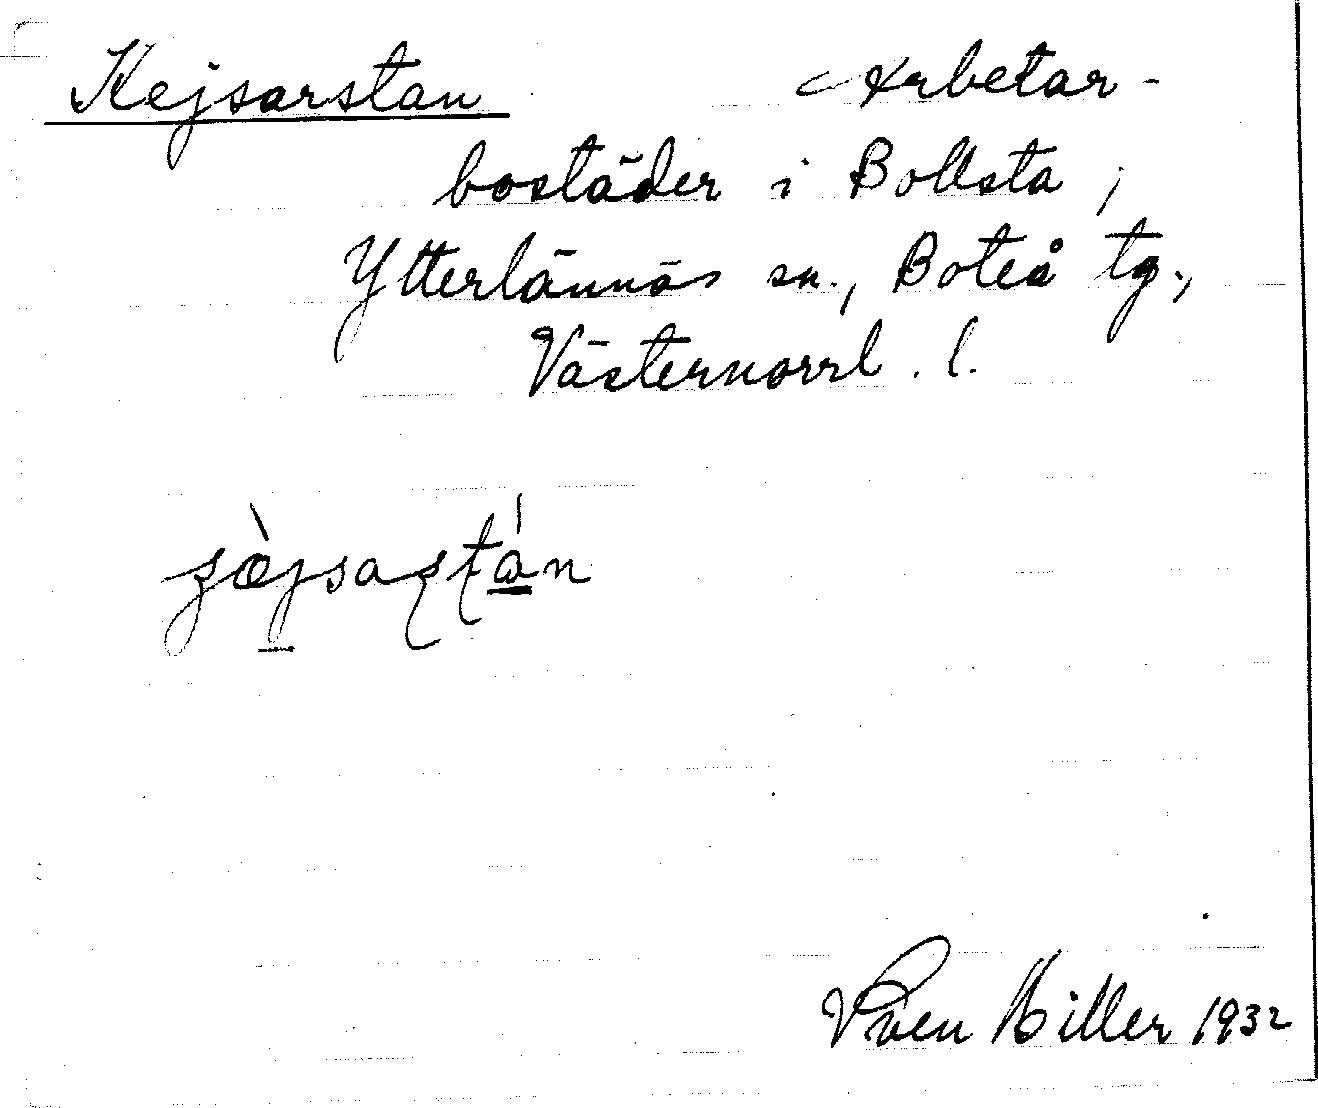 Kejsarstan Arbetar-
bostäder i Bollsta,
Ytterlännäs sn., Boteå tg.,
Västernorrl. l.
Sven Hiller 1932